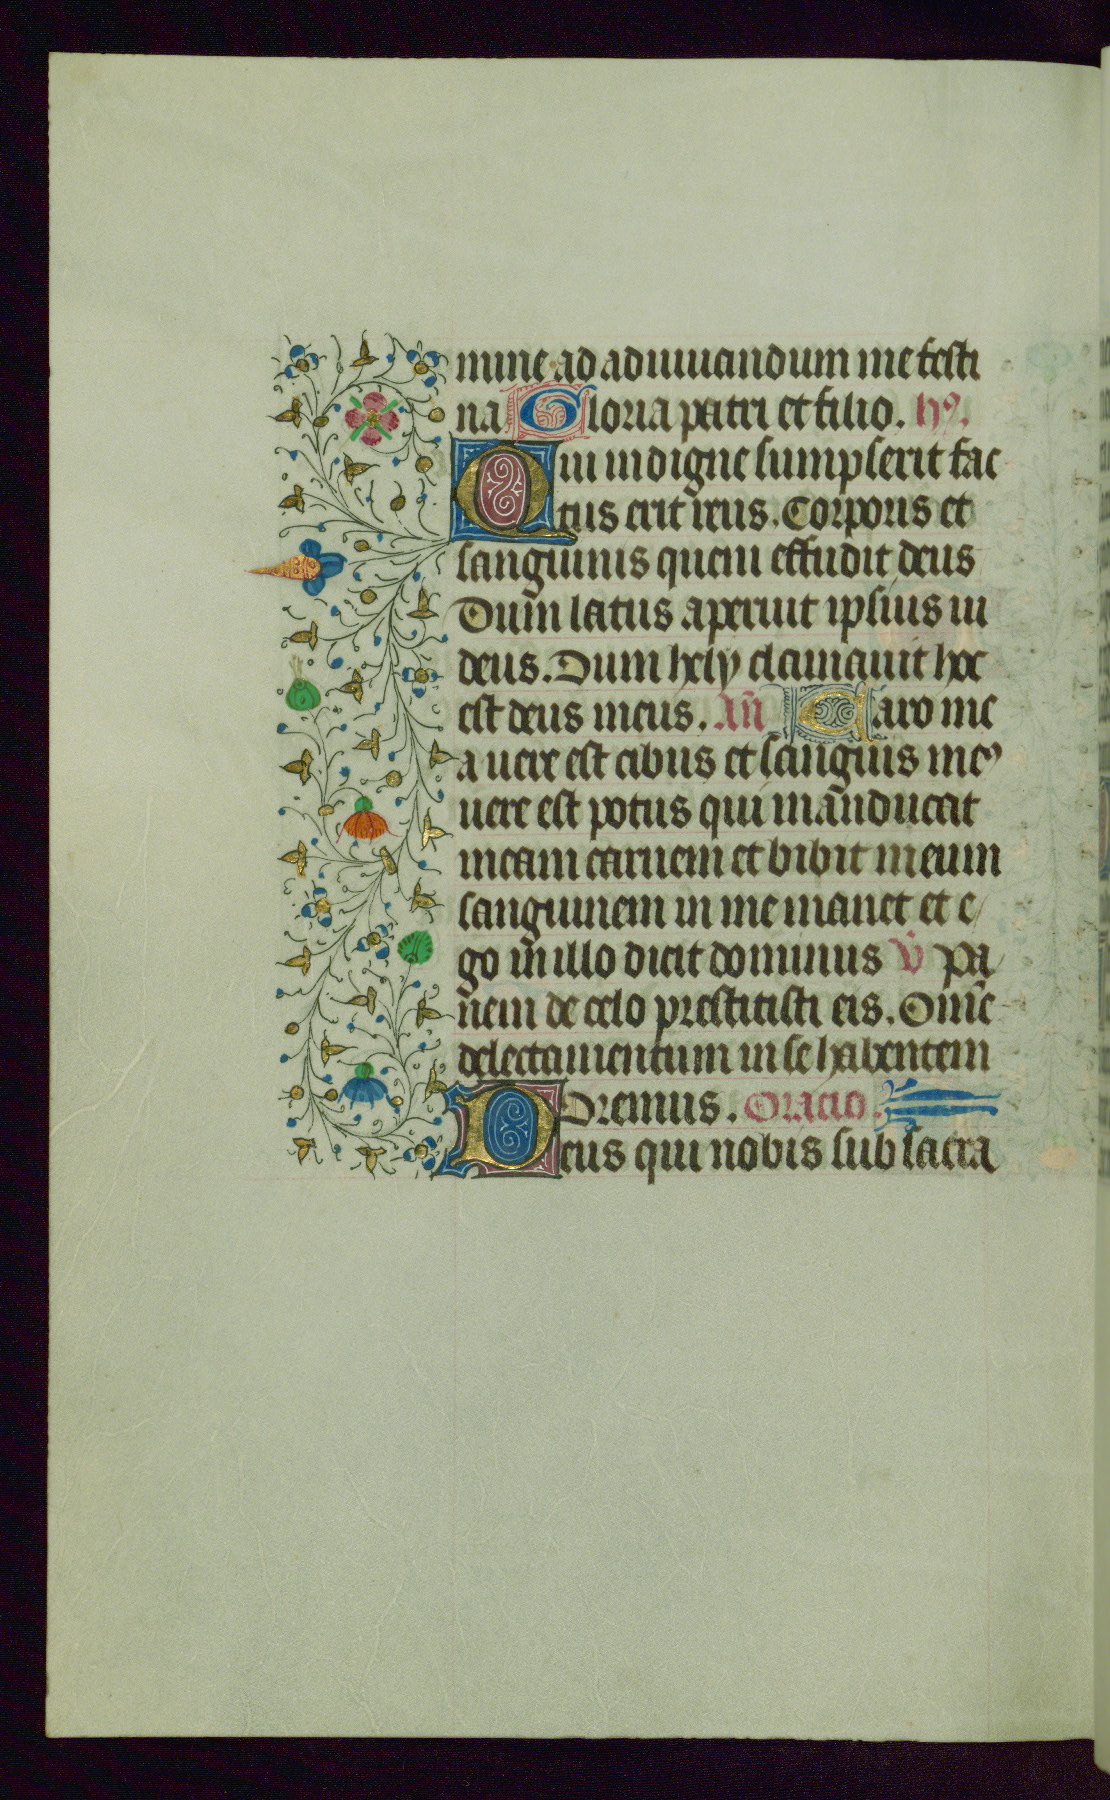 mine ad adiuuandum me festi
na Gloria patri et filio. hꝰ.
Qui indigne sumpserit fac
tus erit reus. Corporis et
sanguinis quem effudit deus
Dum latus aperuit ipsius iu
deus. Dum hely clamauit hoc
est deus meus. An̄ Caro me
a uere est cibus et sanguis meꝰ
uere est potus qui manducat
meam carnem et bibit meum
sanguinem in me manet et e
go in illo dicit dominus V̄ Pa
nem de celo prestitisti eis. Om̄e
delectamentum in se habentem
Oremus. Oracio.
Deus qui nobis sub sacra